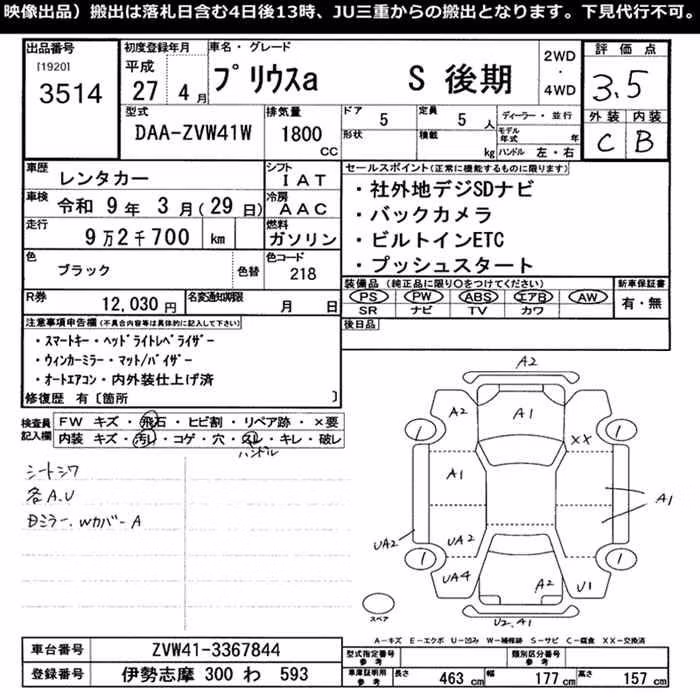 映像出品）搬出は落札日含む4日後13時、JU三重からの搬出となります。下見代行不可。
出品番号
[1920]
3514
初度登録年月
平成
27 4 月
車名・グレード
プリウスa S 後期
2WD
・
4WD
評価点
3.5
外装 内装
C B
型式
DAA-ZVW41W
排気量
1800
CC
ドア
5
定員
5 人
形状
積載
kg
ディーラー・並行
モデル年式 年
ハンドル 左・右
車歴
レンタカー
シフト
IAT
車検
令和 9 年 3 月(29 日)
冷房
AAC
走行
9万2千700 km
燃料
ガソリン
色
ブラック
色替
色コード
218
R券
12,030 円
名変通知期限
月 日
セールスポイント(正常に機能するものに限ります)
・社外地デジSDナビ
・バックカメラ
・ビルトインETC
・プッシュスタート
装備品 (純正品に限り〇をつけてください)
PS PW ABS エアB AW
SR ナビ TV カワ
新車保証書
有・無
後日品
注意事項申告欄(不具合内容等は具体的に記入して下さい)
・スマートキー・ヘッドライトレベライザー
・ウィンカーミラー・マット/バイザー
・オートエアコン・内外装仕上げ済
修復歴 有〔箇所 〕
検査員
記入欄
FW キズ・飛石・ヒビ割・リペア跡・×要
内装 キズ・汚レ・コゲ・穴・スレ・キレ・破レ
ハンドル
シートシワ
各A.U
日ミラー.Wカバー A
A2
A2
A1
XX
1
1
A1
A1
UA2
UA2
1
1
UA4
A2
U1
U2.A1
スペア
A-キズ E-エクボ U-凹み W-補修跡 S-サビ C-腐食 XX-交換済
車台番号
ZVW41-3367844
登録番号
伊勢志摩 300 わ 593
型式指定番号
参考
類別区分番号
参考
車庫証明用
参考
長さ 463 cm 幅 177 cm 高さ 157 cm